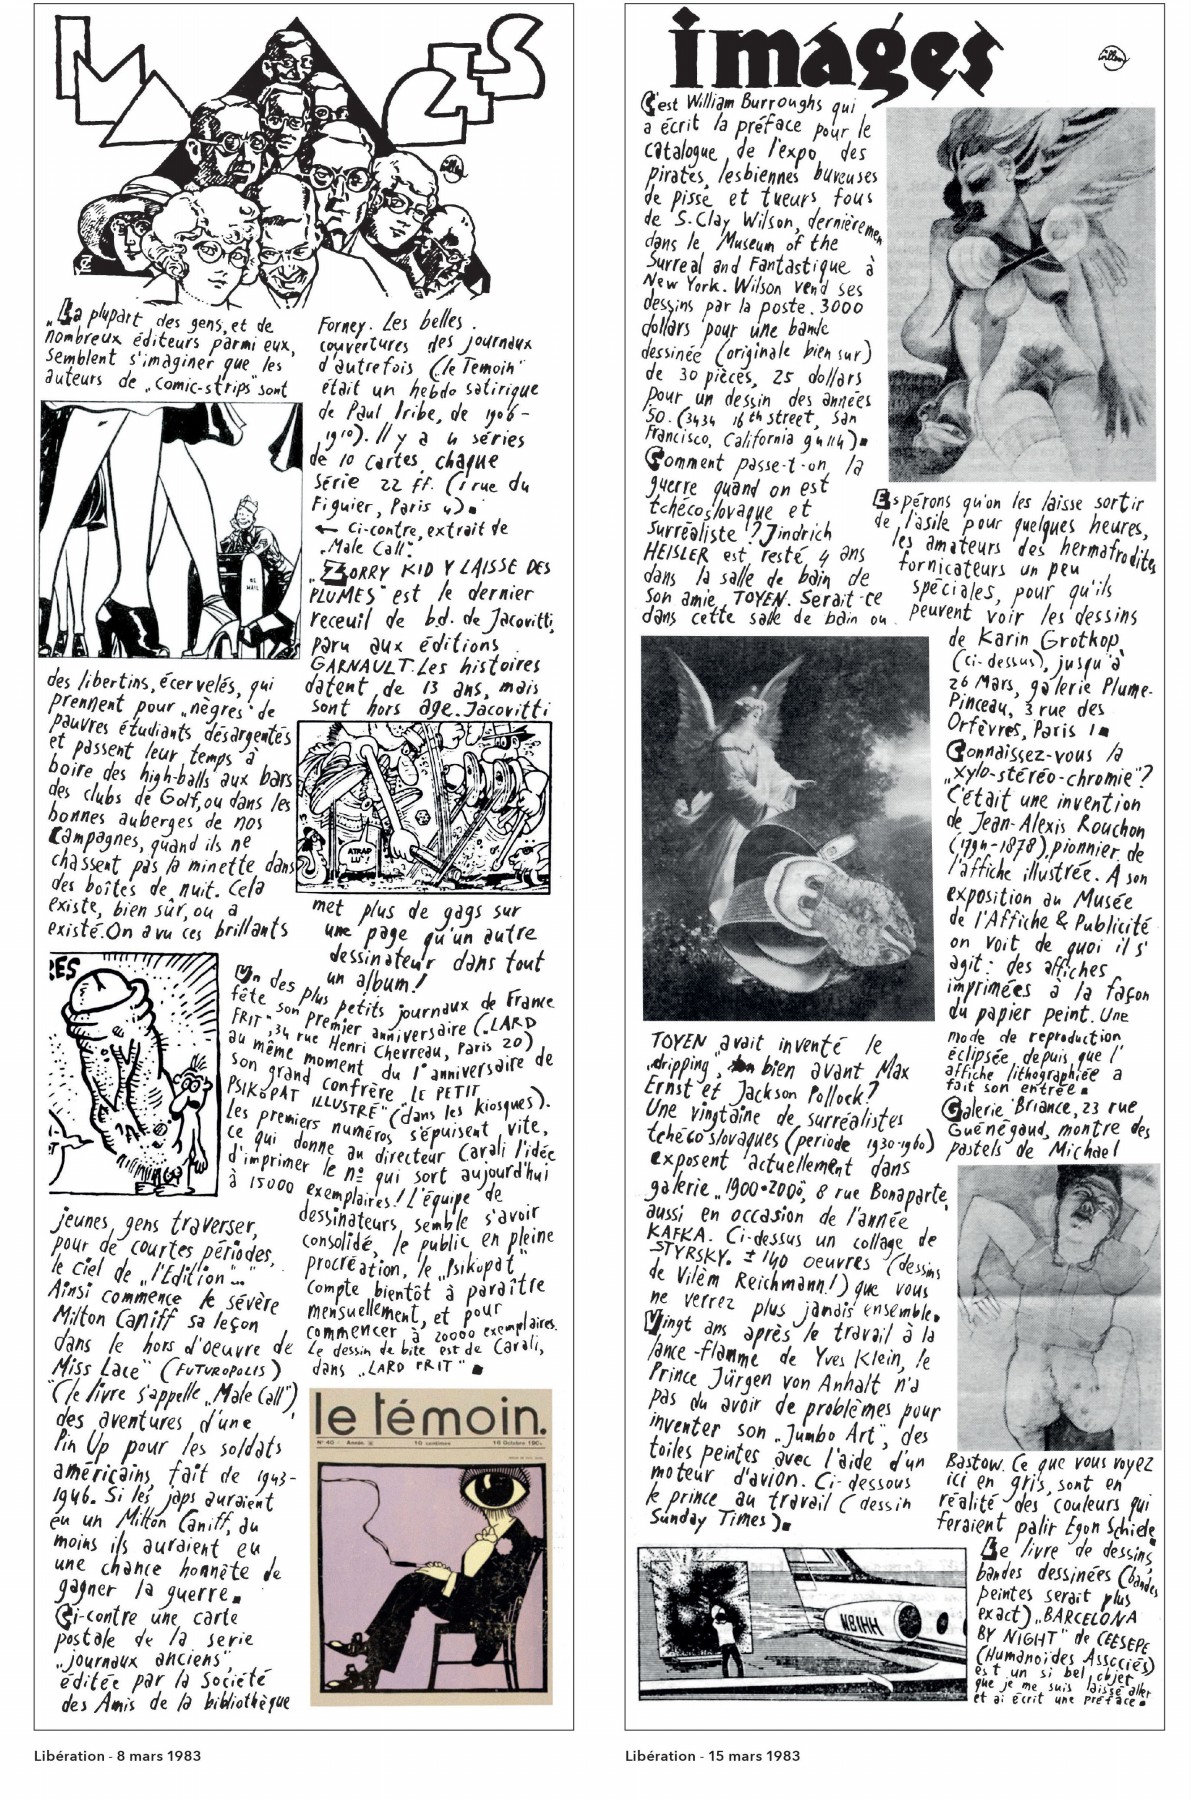 IMAGES
„La plupart des gens, et de
nombreux éditeurs parmi eux,
semblent s'imaginer que les
auteurs de „comic-strips" sont
des libertins, écervelés, qui
prennent pour „nègres" de
pauvres étudiants désargentés
et passent leur temps à
boire des high-balls aux bars
des clubs de Golf, ou dans les
bonnes auberges de nos
Campagnes, quand ils ne
chassent pas la minette dans
des boîtes de nuit. Cela
existe, bien sûr, ou a
existé. On a vu ces brillants
RES
jeunes gens traverser,
pour de courtes périodes,
le ciel de „l'Edition"..."
Ainsi commence le sévère
Milton Caniff sa leçon
dans le hors d'oeuvre de
„Miss Lace" (FUTUROPOLIS)
(le livre s'appelle „Male Call")
des aventures d'une
Pin Up pour les soldats
américains, fait de 1943-
1946. Si les japs auraient
eu un Milton Caniff, au
moins ils auraient eu
une chance honnête de
gagner la guerre.
Ci-contre une carte
postale de la serie
„journaux anciens",
éditée par la Société
des Amis de la bibliothèque
Forney. Les belles
couvertures des journaux
d'autrefois („le Temoin"
était un hebdo satirique
de Paul Iribe, de 1906-
1910). Il y a 4 séries
de 10 cartes, chaque
série 22 ff. (1 rue du
Figuier, Paris 4).
← Ci-contre, extrait de
„Male Call".
„ZORRY KID Y LAISSE DES
PLUMES" est le dernier
receuil de b.d. de Jacovitti,
paru aux éditions
GARNAULT. Les histoires
datent de 13 ans, mais
sont hors âge. Jacovitti
ATRAP
LU'
met plus de gags sur
une page qu'un autre
dessinateur dans tout
un album!
Un des plus petits journaux de France
fête son premier anniversaire („LARD
FRIT", 34 rue Henri Chevreau, Paris 20)
au même moment du 1er anniversaire de
son grand confrère „LE PETIT
PSIKOPAT ILLUSTRÉ" (dans les kiosques).
Les premiers numéros s'épuisent vite,
ce qui donne au directeur Carali l'idée
d'imprimer le nº qui sort aujourd'hui
à 15000 exemplaires! L'équipe de
dessinateurs, semble s'avoir
consolidé, le public en pleine
procréation, le „Psikopat"
compte bientôt à paraître
mensuellement, et pour
commencer à 20000 exemplaires.
Le dessin de bite est de Carali,
dans „LARD FRIT"
le témoin.
Nº 40 - Année
10 centimes
Libération - 8 mars 1983
images
willem
C'est William Burroughs qui
a écrit la préface pour le
catalogue de l'expo des
pirates, lesbiennes buveuses
de pisse et tueurs fous
de S. Clay Wilson, dernièremen
dans le Museum of the
Surreal and Fantastique à
New York. Wilson vend ses
dessins par la poste. 3000
dollars pour une bande
dessinée (originale bien sur)
de 30 pièces, 25 dollars
pour un dessin des années
'50. (3434 16th street, San
Francisco, California 94114).
Comment passe-t-on la
guerre quand on est
tchécoslovaque et
surréaliste? Jindrich
HEISLER est resté 4 ans
dans la salle de bain de
son amie TOYEN. Serait-ce
dans cette salle de bain ou
TOYEN avait inventé le
„dripping", bien avant Max
Ernst et Jackson Pollock?
Une vingtaine de surréalistes
tchécoslovaques (periode 1930-1960)
exposent actuellement dans
galerie „1900•2000", 8 rue Bonaparte,
aussi en occasion de l'année
KAFKA. Ci-dessus un collage de
STYRSKY. ± 140 oeuvres (dessins
de Vilèm Reichmann!) que vous
ne verrez plus jamais ensemble.
Vingt ans après le travail à la
lance-flamme de Yves Klein, le
Prince Jürgen von Anhalt n'a
pas du avoir de problèmes pour
inventer son „Jumbo Art", des
toiles peintes avec l'aide d'un
moteur d'avion. Ci-dessous
le prince au travail (dessin
Sunday Times).
N81HH
Espérons qu'on les laisse sortir
de l'asile pour quelques heures,
les amateurs des hermafrodites
fornicateurs un peu
spéciales, pour qu'ils
peuvent voir les dessins
de Karin Grotkop
(ci-dessus), jusqu'à
26 Mars, galerie Plume-
Pinceau, 3 rue des
Orfèvres, Paris 1
Connaissez-vous la
„xylo-stéréo-chromie"?
C'était une invention
de Jean-Alexis Rouchon
(1794-1878), pionnier de
l'affiche illustrée. A son
exposition au Musée
de l'Affiche & Publicité
on voit de quoi il s'
agit: des affiches
imprimées à la façon
du papier peint. Une
mode de reproduction
éclipsée depuis que l'
affiche lithographiée a
fait son entrée.
Galerie Briance, 23 rue
Guénégaud, montre des
pastels de Michael
Bastow. Ce que vous voyez
ici en gris, sont en
réalité des couleurs qui
feraient palir Egon Schiele
Le livre de dessins,
bandes dessinées (bandes
peintes serait plus
exact) „BARCELONA
BY NIGHT" de CEESEPE
(Humanoïdes Associés)
est un si bel objet
que je me suis laissé aller
et ai écrit une préface.
Libération - 15 mars 1983